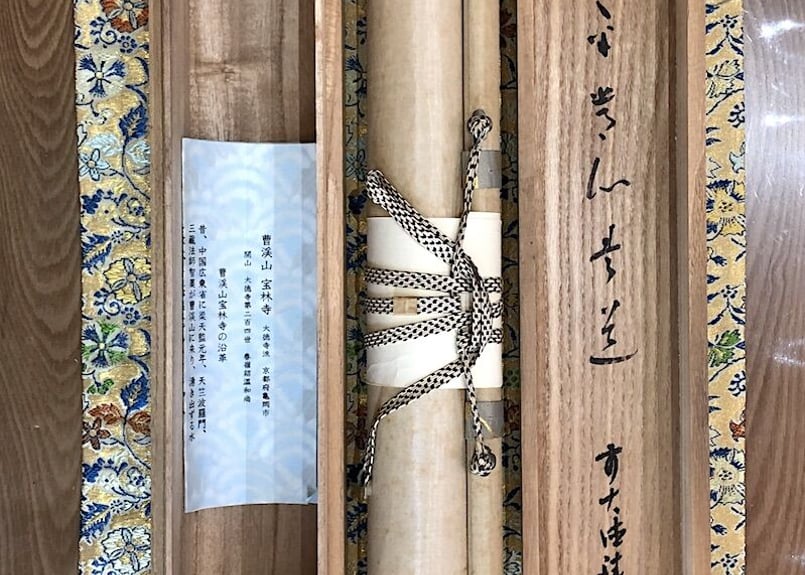 平常心是道
前大徳
曹溪山 宝林寺 大徳寺派 京都府亀岡市
開山 大徳寺第二百四世 春嶺紹温和尚
曹渓山宝林寺の沿革
昔、中国広東省に梁天監元年、天竺波羅門、
三蔵法師智薬が曹渓山に来り、湧き出ずる水